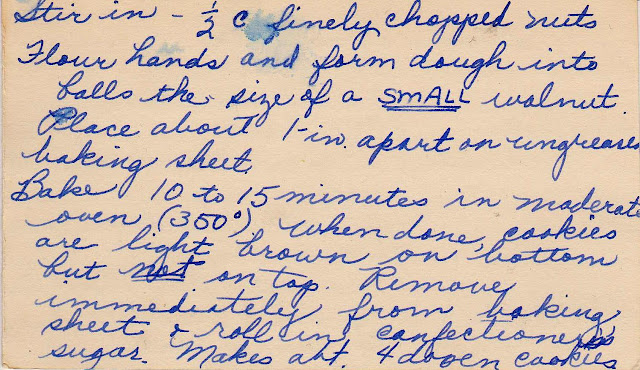 Stir in - 1/2 c finely chopped nuts
Flour hands and form dough into
balls the size of a SMALL walnut.
Place about 1-in. apart on ungreased
baking sheet.
Bake 10 to 15 minutes in moderate
oven (350°) When done, cookies
are light brown on bottom
but not on top. Remove
immediately from baking
sheet & roll in confectioner's
sugar. Makes abt. 4 dozen cookies